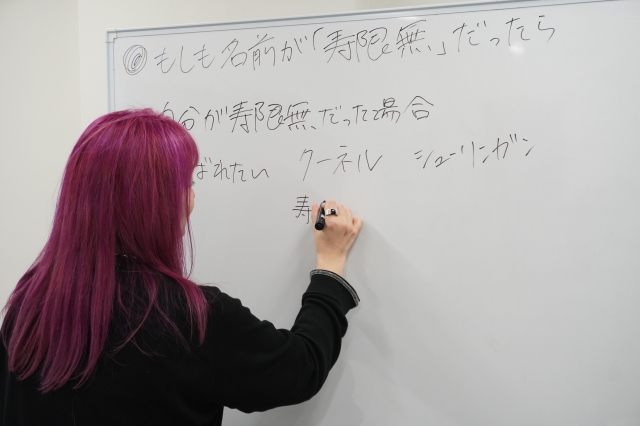 ◎もしも名前が「寿限無」だったら
自分が寿限無だった場合
ばれたい クーネル シューリンガン
寿